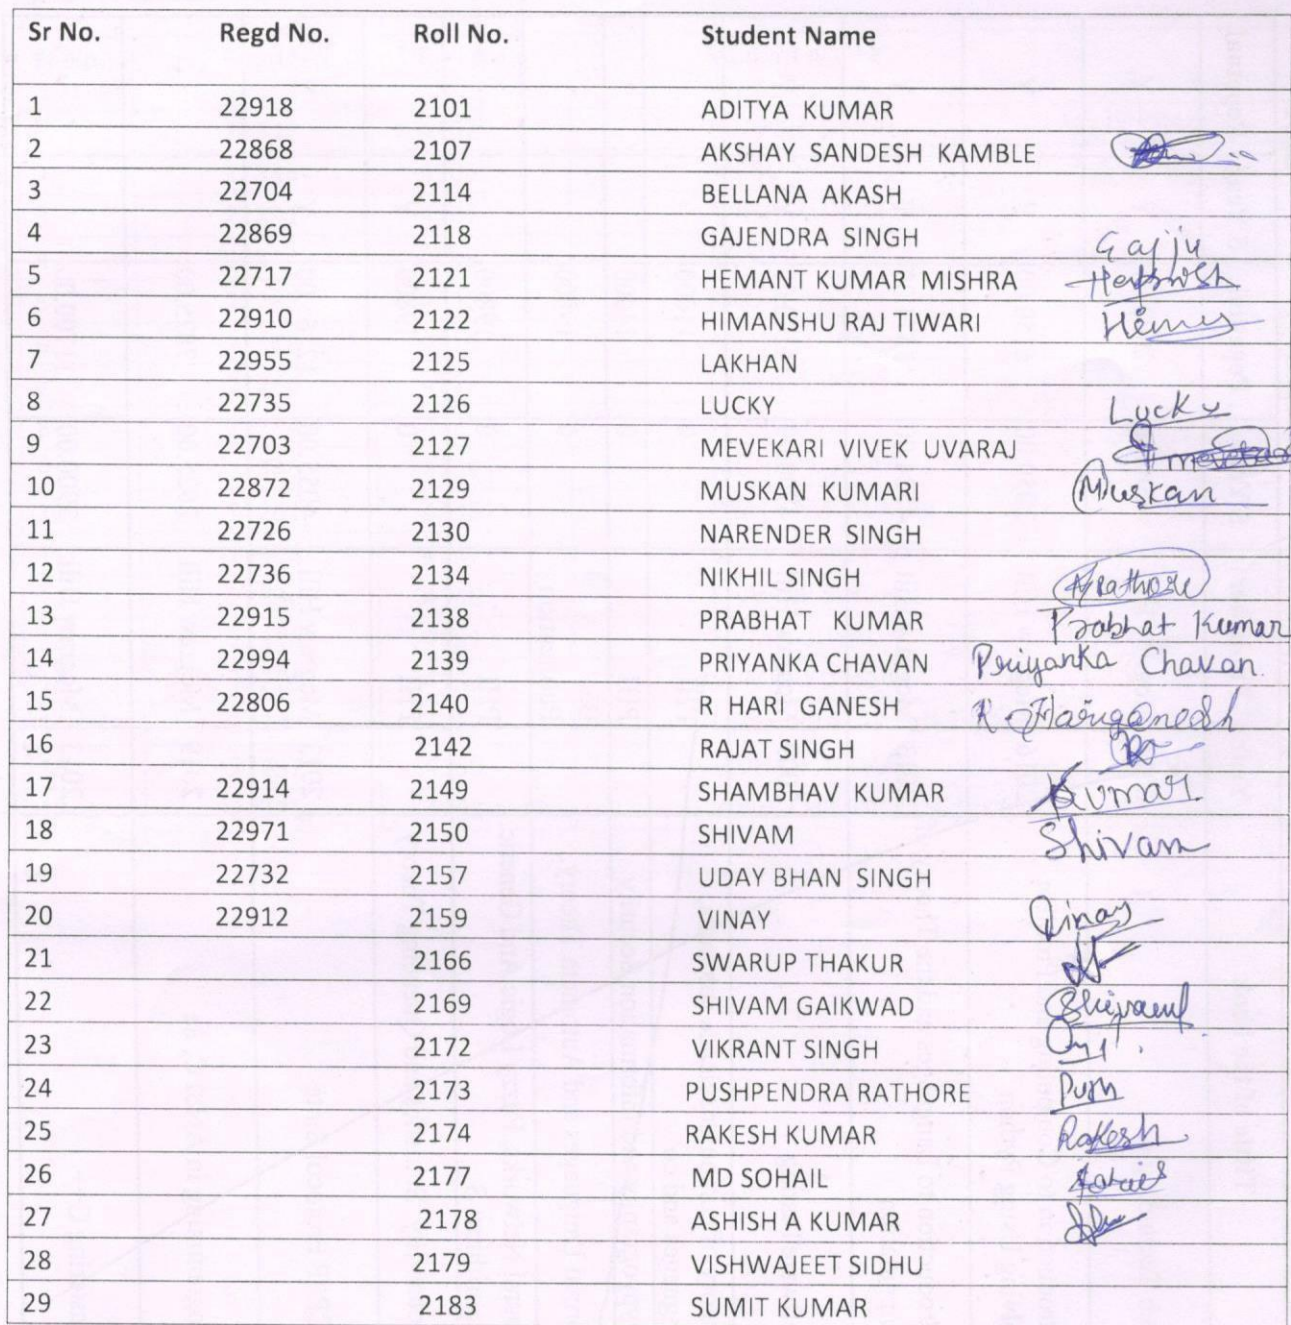 Sr No. Regd No. Roll No. Student Name
1 22918 2101 ADITYA KUMAR
2 22868 2107 AKSHAY SANDESH KAMBLE
3 22704 2114 BELLANA AKASH
4 22869 2118 GAJENDRA SINGH Gajju
5 22717 2121 HEMANT KUMAR MISHRA
6 22910 2122 HIMANSHU RAJ TIWARI
7 22955 2125 LAKHAN
8 22735 2126 LUCKY Lucky
9 22703 2127 MEVEKARI VIVEK UVARAJ
10 22872 2129 MUSKAN KUMARI Muskan
11 22726 2130 NARENDER SINGH
12 22736 2134 NIKHIL SINGH
13 22915 2138 PRABHAT KUMAR Prabhat Kumar
14 22994 2139 PRIYANKA CHAVAN Priyanka Chavan.
15 22806 2140 R HARI GANESH R. Hariganesh
16 2142 RAJAT SINGH
17 22914 2149 SHAMBHAV KUMAR Kumar.
18 22971 2150 SHIVAM Shivam
19 22732 2157 UDAY BHAN SINGH
20 22912 2159 VINAY Vinay
21 2166 SWARUP THAKUR
22 2169 SHIVAM GAIKWAD
23 2172 VIKRANT SINGH
24 2173 PUSHPENDRA RATHORE Push
25 2174 RAKESH KUMAR Rakesh
26 2177 MD SOHAIL Sohail
27 2178 ASHISH A KUMAR
28 2179 VISHWAJEET SIDHU
29 2183 SUMIT KUMAR